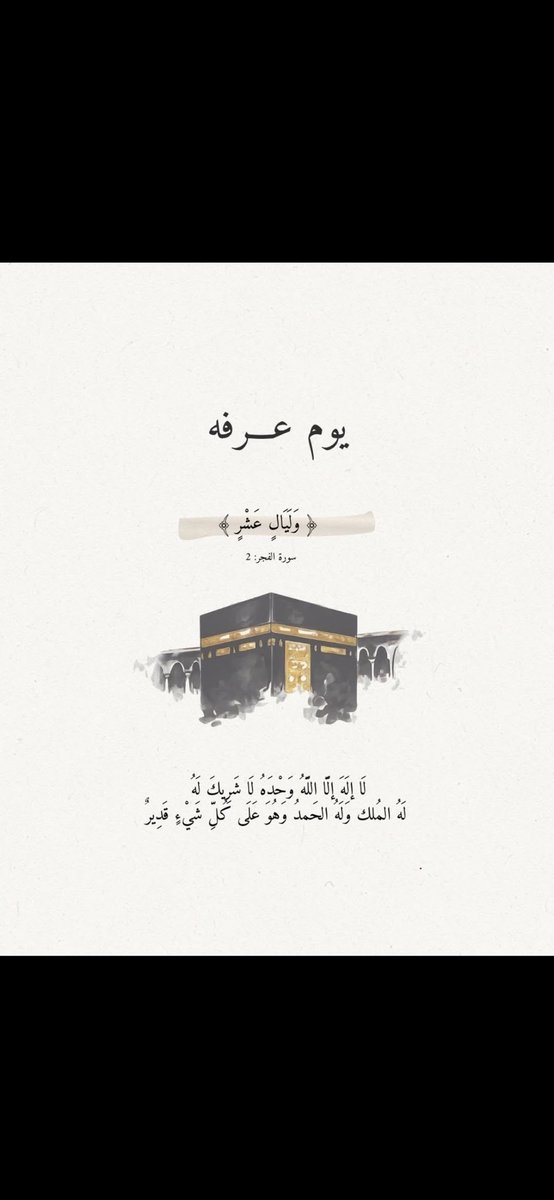 يوم عـــرفه
﴿ وَلَيَالٍ عَشْرٍ ﴾
سورة الفجر: 2
لَا إِلَهَ إِلَّا اللَّهُ وَحْدَهُ لَا شَرِيكَ لَهُ
لَهُ المُلك وَلَهُ الحَمدُ وَهُوَ عَلَى كُلِّ شَيْءٍ قَدِيرٌ